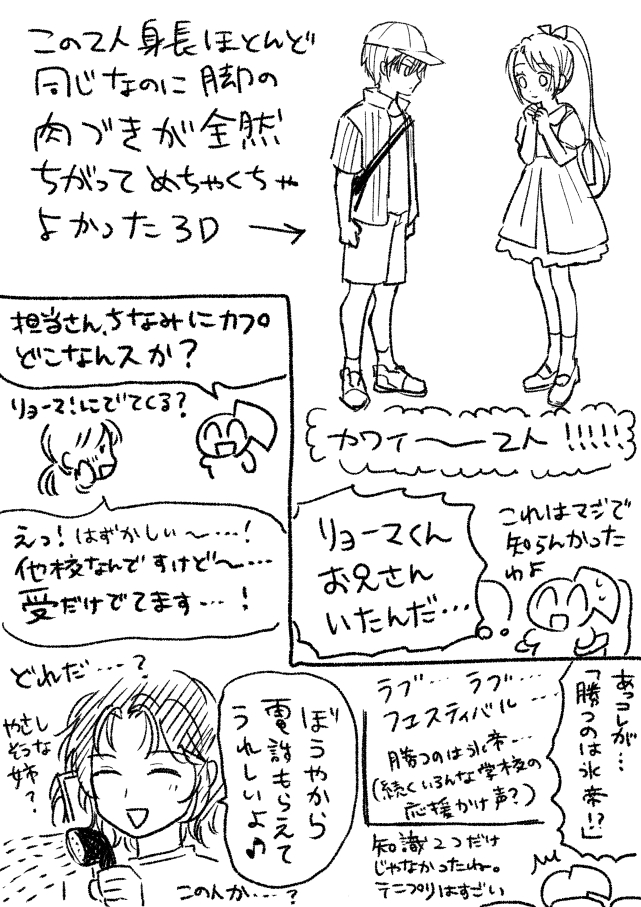 この2人身長ほとんど
同じなのに脚の
肉づきが全然
ちがってめちゃくちゃ
よかった3D →
カワイーー2人!!!!!
担当さん、ちなみにカプ
どこなんスか?
リョーマ!にでてくる?
えっ!はずかしぃ〜…!
他校なんですけど〜…
受だけでてます…!
これはマジで
知らんかった
わよ
リョーマくん
お兄さん
いたんだ…
どれだ…?
やさし
そうな
姉?
ぼうやから
電話もらえて
うれしいよ♪
このんか…?
あっコレが…
「勝つのは氷帝!?」
ラブ… ラブ…
フェスティバル…
勝つのは氷帝…
(続くいろんな学校の
応援かけ声?)
知識2つだけ
じゃなかったねー。
テニプリはすごい